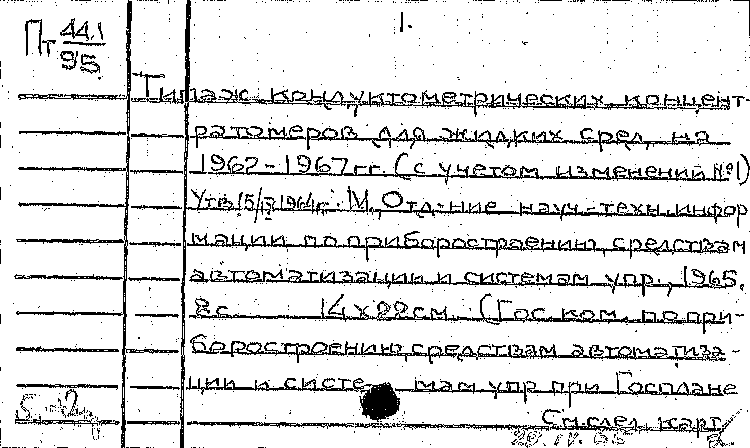 1.
Пт 44.1
95
Типаж кондуктометрических концент-
ратомеров для жидких сред, на
1962-1967 гг. (с учетом изменений №1)
Утв. 15/IX 1964г. М., Отд-ние науч.-техн. инфор
мации по приборостроению, средствам
автоматизации и системам упр., 1965.
8 с. 14х22 см. (Гос. ком. по при-
боростроению, средствам автоматиза-
ции и систе мам упр при Госплане
См. след. карт